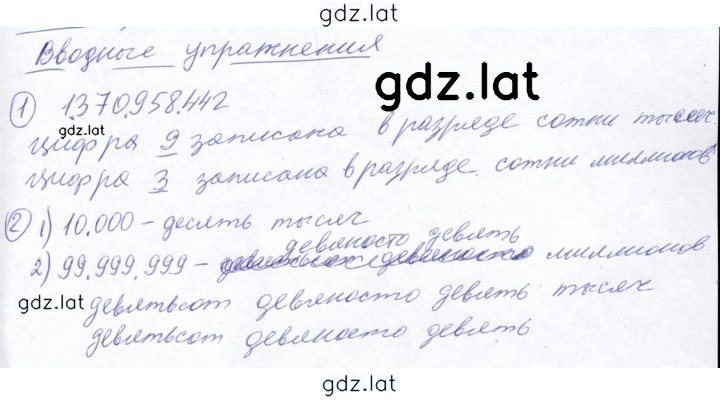 gdz.lat
Вводные упражнения
gdz.lat
① 1.370.958.442
gdz.lat
цифра 9 записана в разряде сотни тысяч.
Цифра 3 записана в разряде сотни миллионов
② 1) 10.000 – десять тысяч
девяносто девять
2) 99.999.999 – миллионов
gdz.lat
девятьсот девяносто девять тысяч
девятьсот девяносто девять
gdz.lat